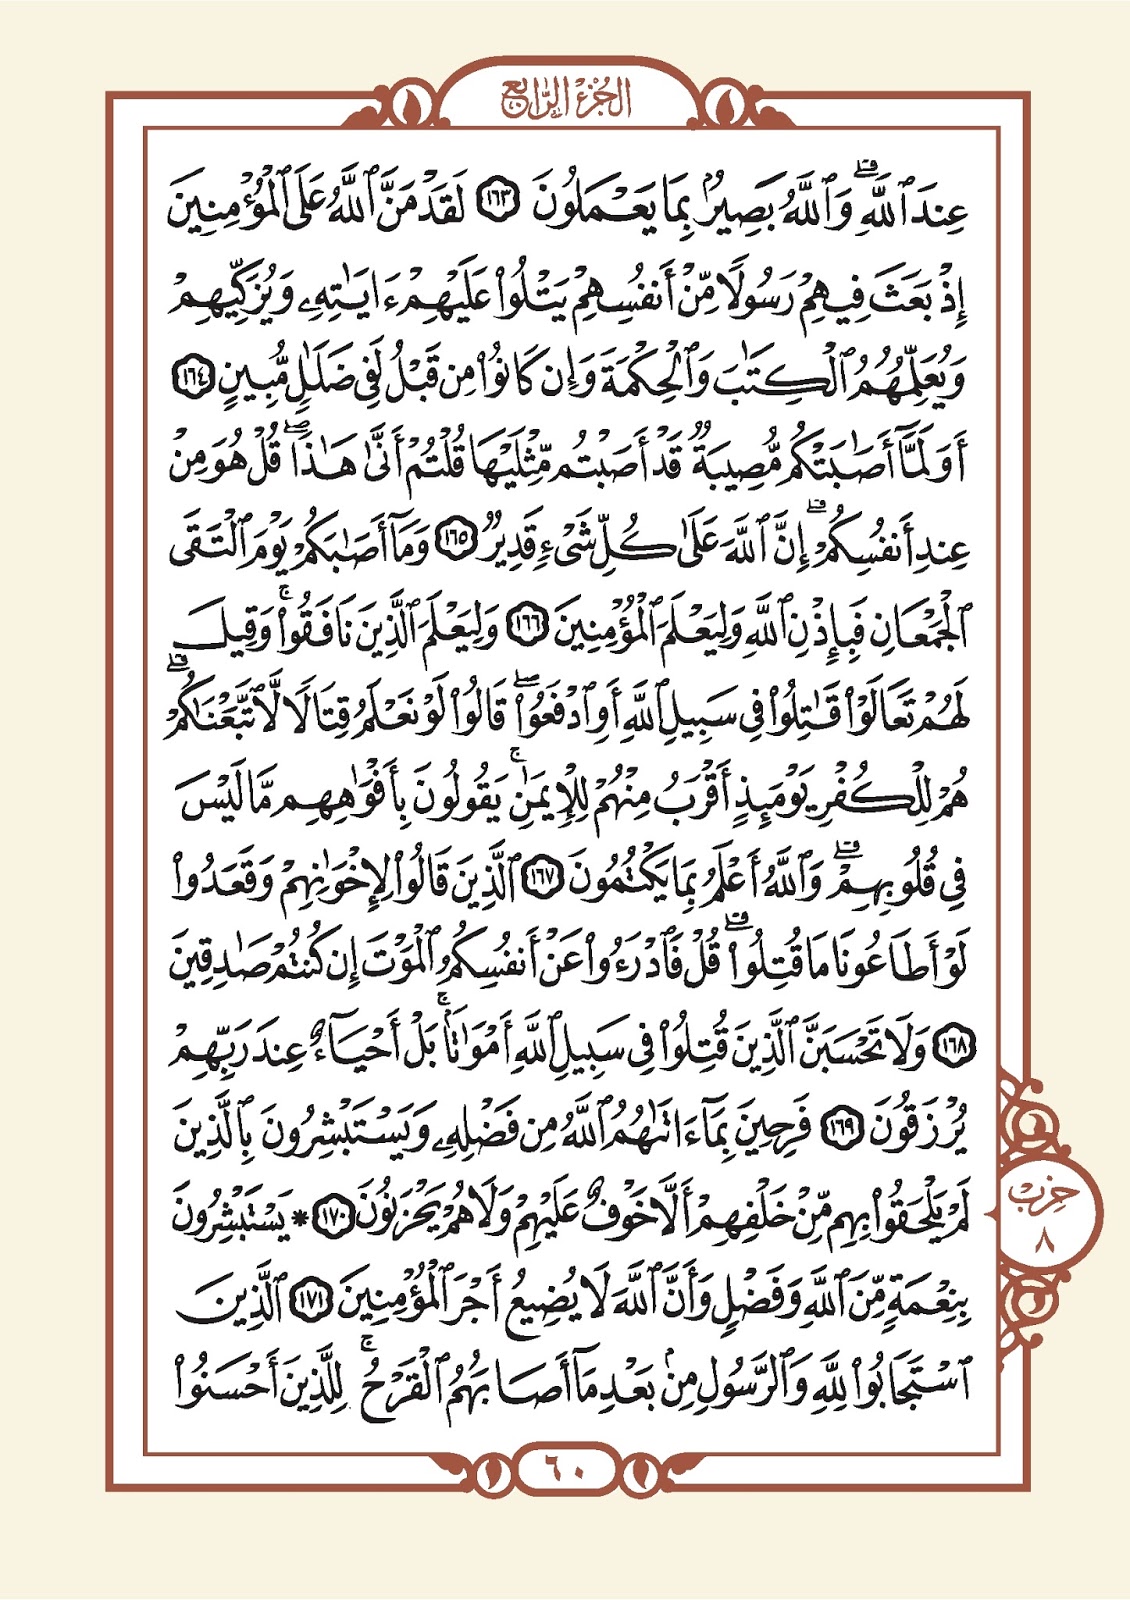 الجُزْءُ الرَّابِع
عِندَ ٱللَّهِۗ وَٱللَّهُ بَصِيرُۢ بِمَا يَعْمَلُونَ ١٦٣ لَقَدْ مَنَّ ٱللَّهُ عَلَى ٱلْمُؤْمِنِينَ
إِذْ بَعَثَ فِيهِمْ رَسُولًا مِّنْ أَنفُسِهِمْ يَتْلُوا۟ عَلَيْهِمْ ءَايَٰتِهِۦ وَيُزَكِّيهِمْ
وَيُعَلِّمُهُمُ ٱلْكِتَٰبَ وَٱلْحِكْمَةَ وَإِن كَانُوا۟ مِن قَبْلُ لَفِى ضَلَٰلٍ مُّبِينٍ ١٦٤
أَوَلَمَّآ أَصَٰبَتْكُم مُّصِيبَةٌ قَدْ أَصَبْتُم مِّثْلَيْهَا قُلْتُمْ أَنَّىٰ هَٰذَاۖ قُلْ هُوَ مِنْ
عِندِ أَنفُسِكُمْۗ إِنَّ ٱللَّهَ عَلَىٰ كُلِّ شَىْءٍ قَدِيرٌ ١٦٥ وَمَآ أَصَٰبَكُمْ يَوْمَ ٱلْتَقَى
ٱلْجَمْعَانِ فَبِإِذْنِ ٱللَّهِ وَلِيَعْلَمَ ٱلْمُؤْمِنِينَ ١٦٦ وَلِيَعْلَمَ ٱلَّذِينَ نَافَقُوا۟ۚ وَقِيلَ
لَهُمْ تَعَالَوْا۟ قَٰتِلُوا۟ فِى سَبِيلِ ٱللَّهِ أَوِ ٱدْفَعُوا۟ۖ قَالُوا۟ لَوْ نَعْلَمُ قِتَالًا لَّٱتَّبَعْنَٰكُمْۗ
هُمْ لِلْكُفْرِ يَوْمَئِذٍ أَقْرَبُ مِنْهُمْ لِلْإِيمَٰنِۚ يَقُولُونَ بِأَفْوَٰهِهِم مَّا لَيْسَ
فِى قُلُوبِهِمْۗ وَٱللَّهُ أَعْلَمُ بِمَا يَكْتُمُونَ ١٦٧ ٱلَّذِينَ قَالُوا۟ لِإِخْوَٰنِهِمْ وَقَعَدُوا۟
لَوْ أَطَاعُونَا مَا قُتِلُوا۟ۗ قُلْ فَٱدْرَءُوا۟ عَنْ أَنفُسِكُمُ ٱلْمَوْتَ إِن كُنتُمْ صَٰدِقِينَ
١٦٨ وَلَا تَحْسَبَنَّ ٱلَّذِينَ قُتِلُوا۟ فِى سَبِيلِ ٱللَّهِ أَمْوَٰتًۢاۚ بَلْ أَحْيَآءٌ عِندَ رَبِّهِمْ
يُرْزَقُونَ ١٦٩ فَرِحِينَ بِمَآ ءَاتَىٰهُمُ ٱللَّهُ مِن فَضْلِهِۦ وَيَسْتَبْشِرُونَ بِٱلَّذِينَ
لَمْ يَلْحَقُوا۟ بِهِم مِّنْ خَلْفِهِمْ أَلَّا خَوْفٌ عَلَيْهِمْ وَلَا هُمْ يَحْزَنُونَ ١٧٠ * يَسْتَبْشِرُونَ
بِنِعْمَةٍ مِّنَ ٱللَّهِ وَفَضْلٍ وَأَنَّ ٱللَّهَ لَا يُضِيعُ أَجْرَ ٱلْمُؤْمِنِينَ ١٧١ ٱلَّذِينَ
ٱسْتَجَابُوا۟ لِلَّهِ وَٱلرَّسُولِ مِنۢ بَعْدِ مَآ أَصَابَهُمُ ٱلْقَرْحُۚ لِلَّذِينَ أَحْسَنُوا۟
حِزْبٌ
٨
٦٠